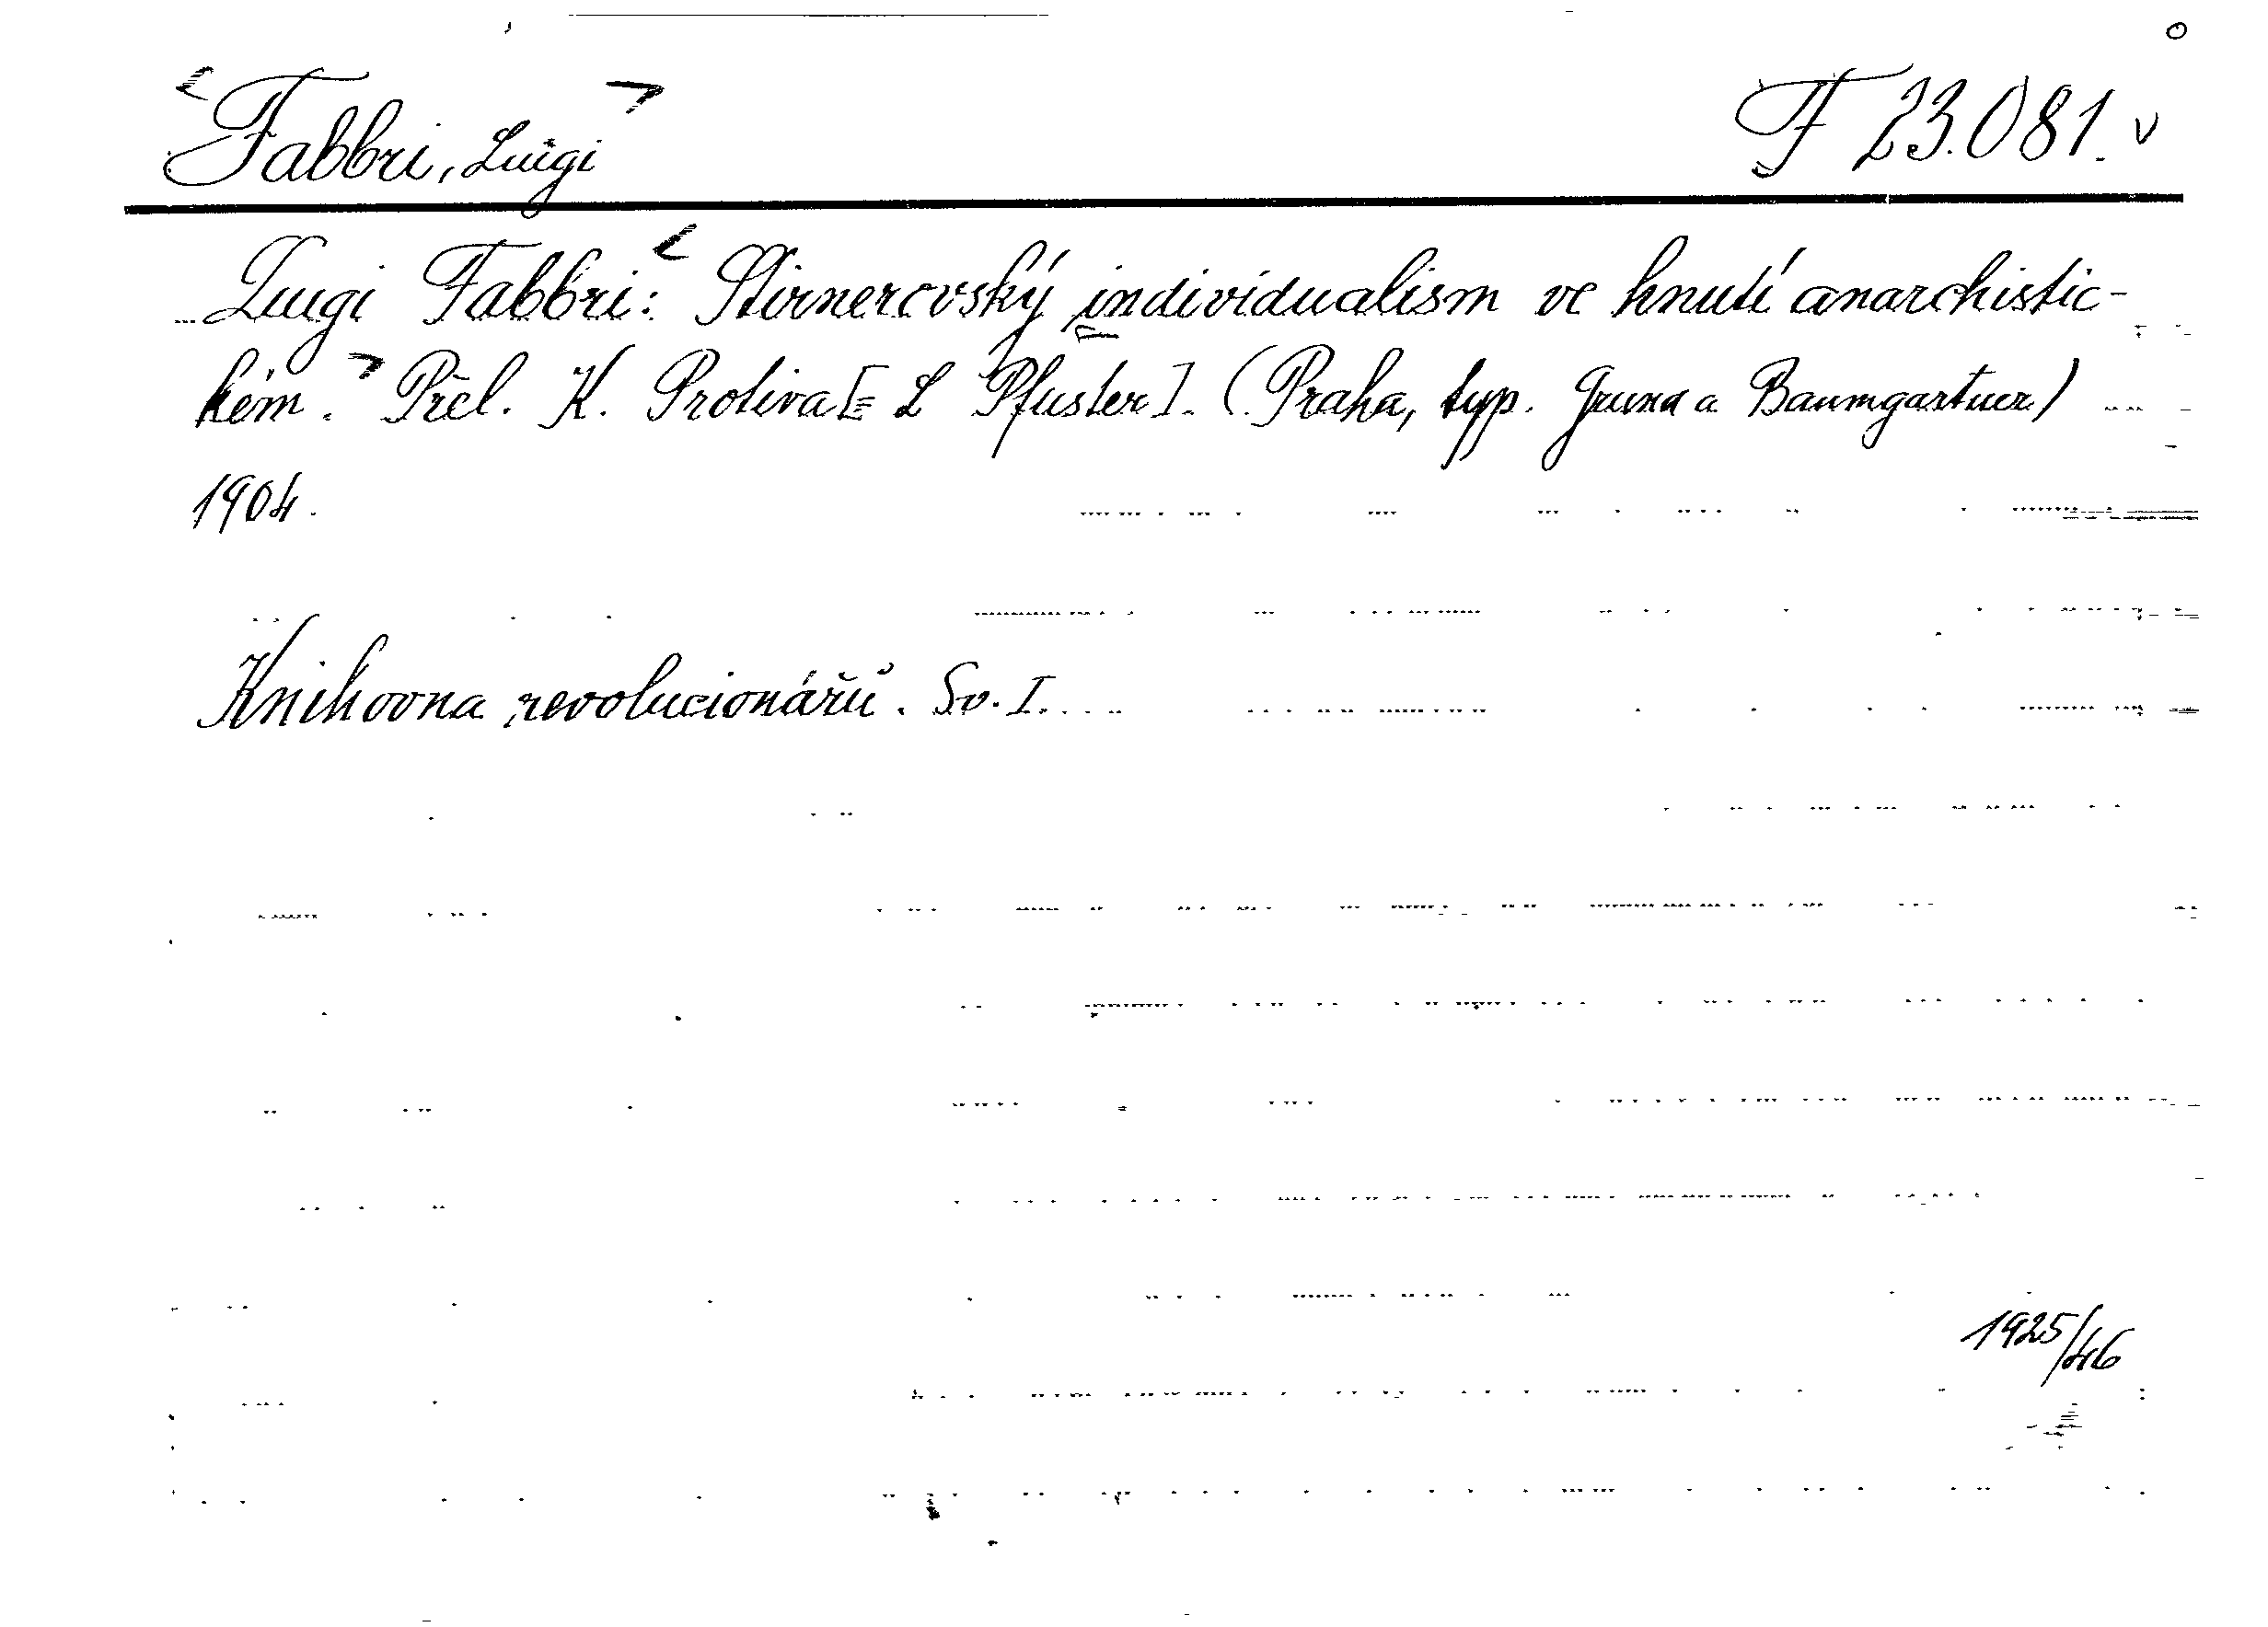 Fabbri, Luigi
F 23.081.
Luigi Fabbri: Stirnerovský individualism ve hnutí anarchistic-
kém. Přel. K. Protiva [= L Pfuster]. (Praha, typ. Gruna a Baumgartner)
1904.
Knihovna revolucionářů. Sv. I.
1925/46